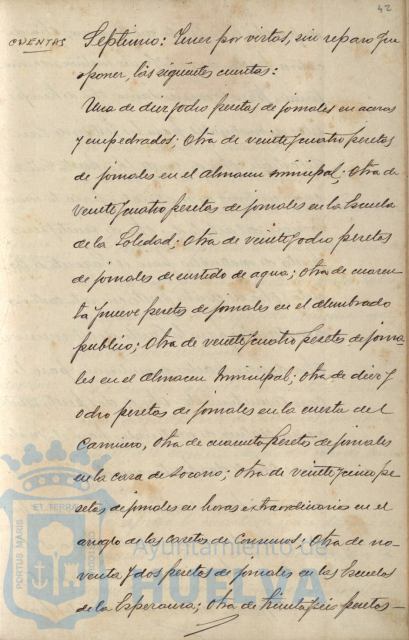 42
CUENTAS
Septimo: Tener por vistas, sin reparo que
oponer, las siguientes cuentas:
Una de diez y ocho pesetas de jornales en aceras
y empedrados; Otra de veinte y cuatro pesetas
de jornales en el Almacen Municipal; Otra de
veinte y cuatro pesetas de jornales en la Escuela
de la Soledad; Otra de veinte y ocho pesetas
de jornales de surtido de agua; Otra de cuaren-
ta y nueve pesetas de jornales en el alumbrado
publico; Otra de veinte y cuatro pesetas de jorna-
les en el Almacen Municipal; Otra de diez y
ocho pesetas de jornales en la cuesta del
Carnicero, Otra de cuarenta pesetas de jornales
en la casa de Socorro; Otra de veinte y cinco pe-
setas de jornales en horas extraordinarias en el
arreglo de las casetas de Consumos; Otra de no-
venta y dos pesetas de jornales en las Escuelas
de la Esperanza; Otra de treinta y seis pesetas-
PORTUS MARIS ET TERRAE
Ayuntamiento de
HUELVA